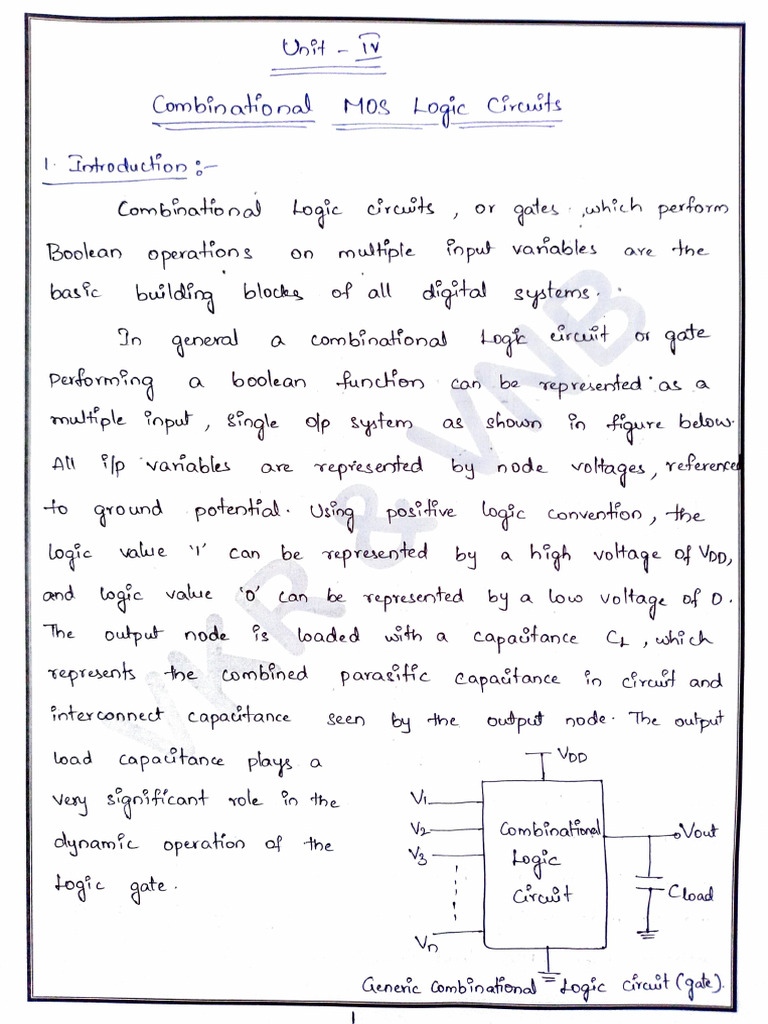 Unit - IV
Combinational MOS Logic Circuits
1. Introduction :-
Combinational Logic circuits, or gates, which perform
Boolean operations on multiple input variables are the
basic building blocks of all digital systems.
In general a combinational Logic circuit or gate
performing a boolean function can be represented as a
multiple input, single o/p system as shown in figure below.
All i/p variables are represented by node voltages, referenced
to ground potential. Using positive logic convention, the
logic value '1' can be represented by a high voltage of VDD,
and logic value '0' can be represented by a low voltage of 0.
The output node is loaded with a capacitance CL, which
represents the combined parasitic capacitance in circuit and
interconnect capacitance seen by the output node. The output
load capacitance plays a
very significant role in the
dynamic operation of the
Logic gate.
VDD
V1
V2
V3
Vn
Combinational
Logic
Circuit
Vout
Cload
Generic Combinational Logic circuit (gate).
1
VKR & VNB